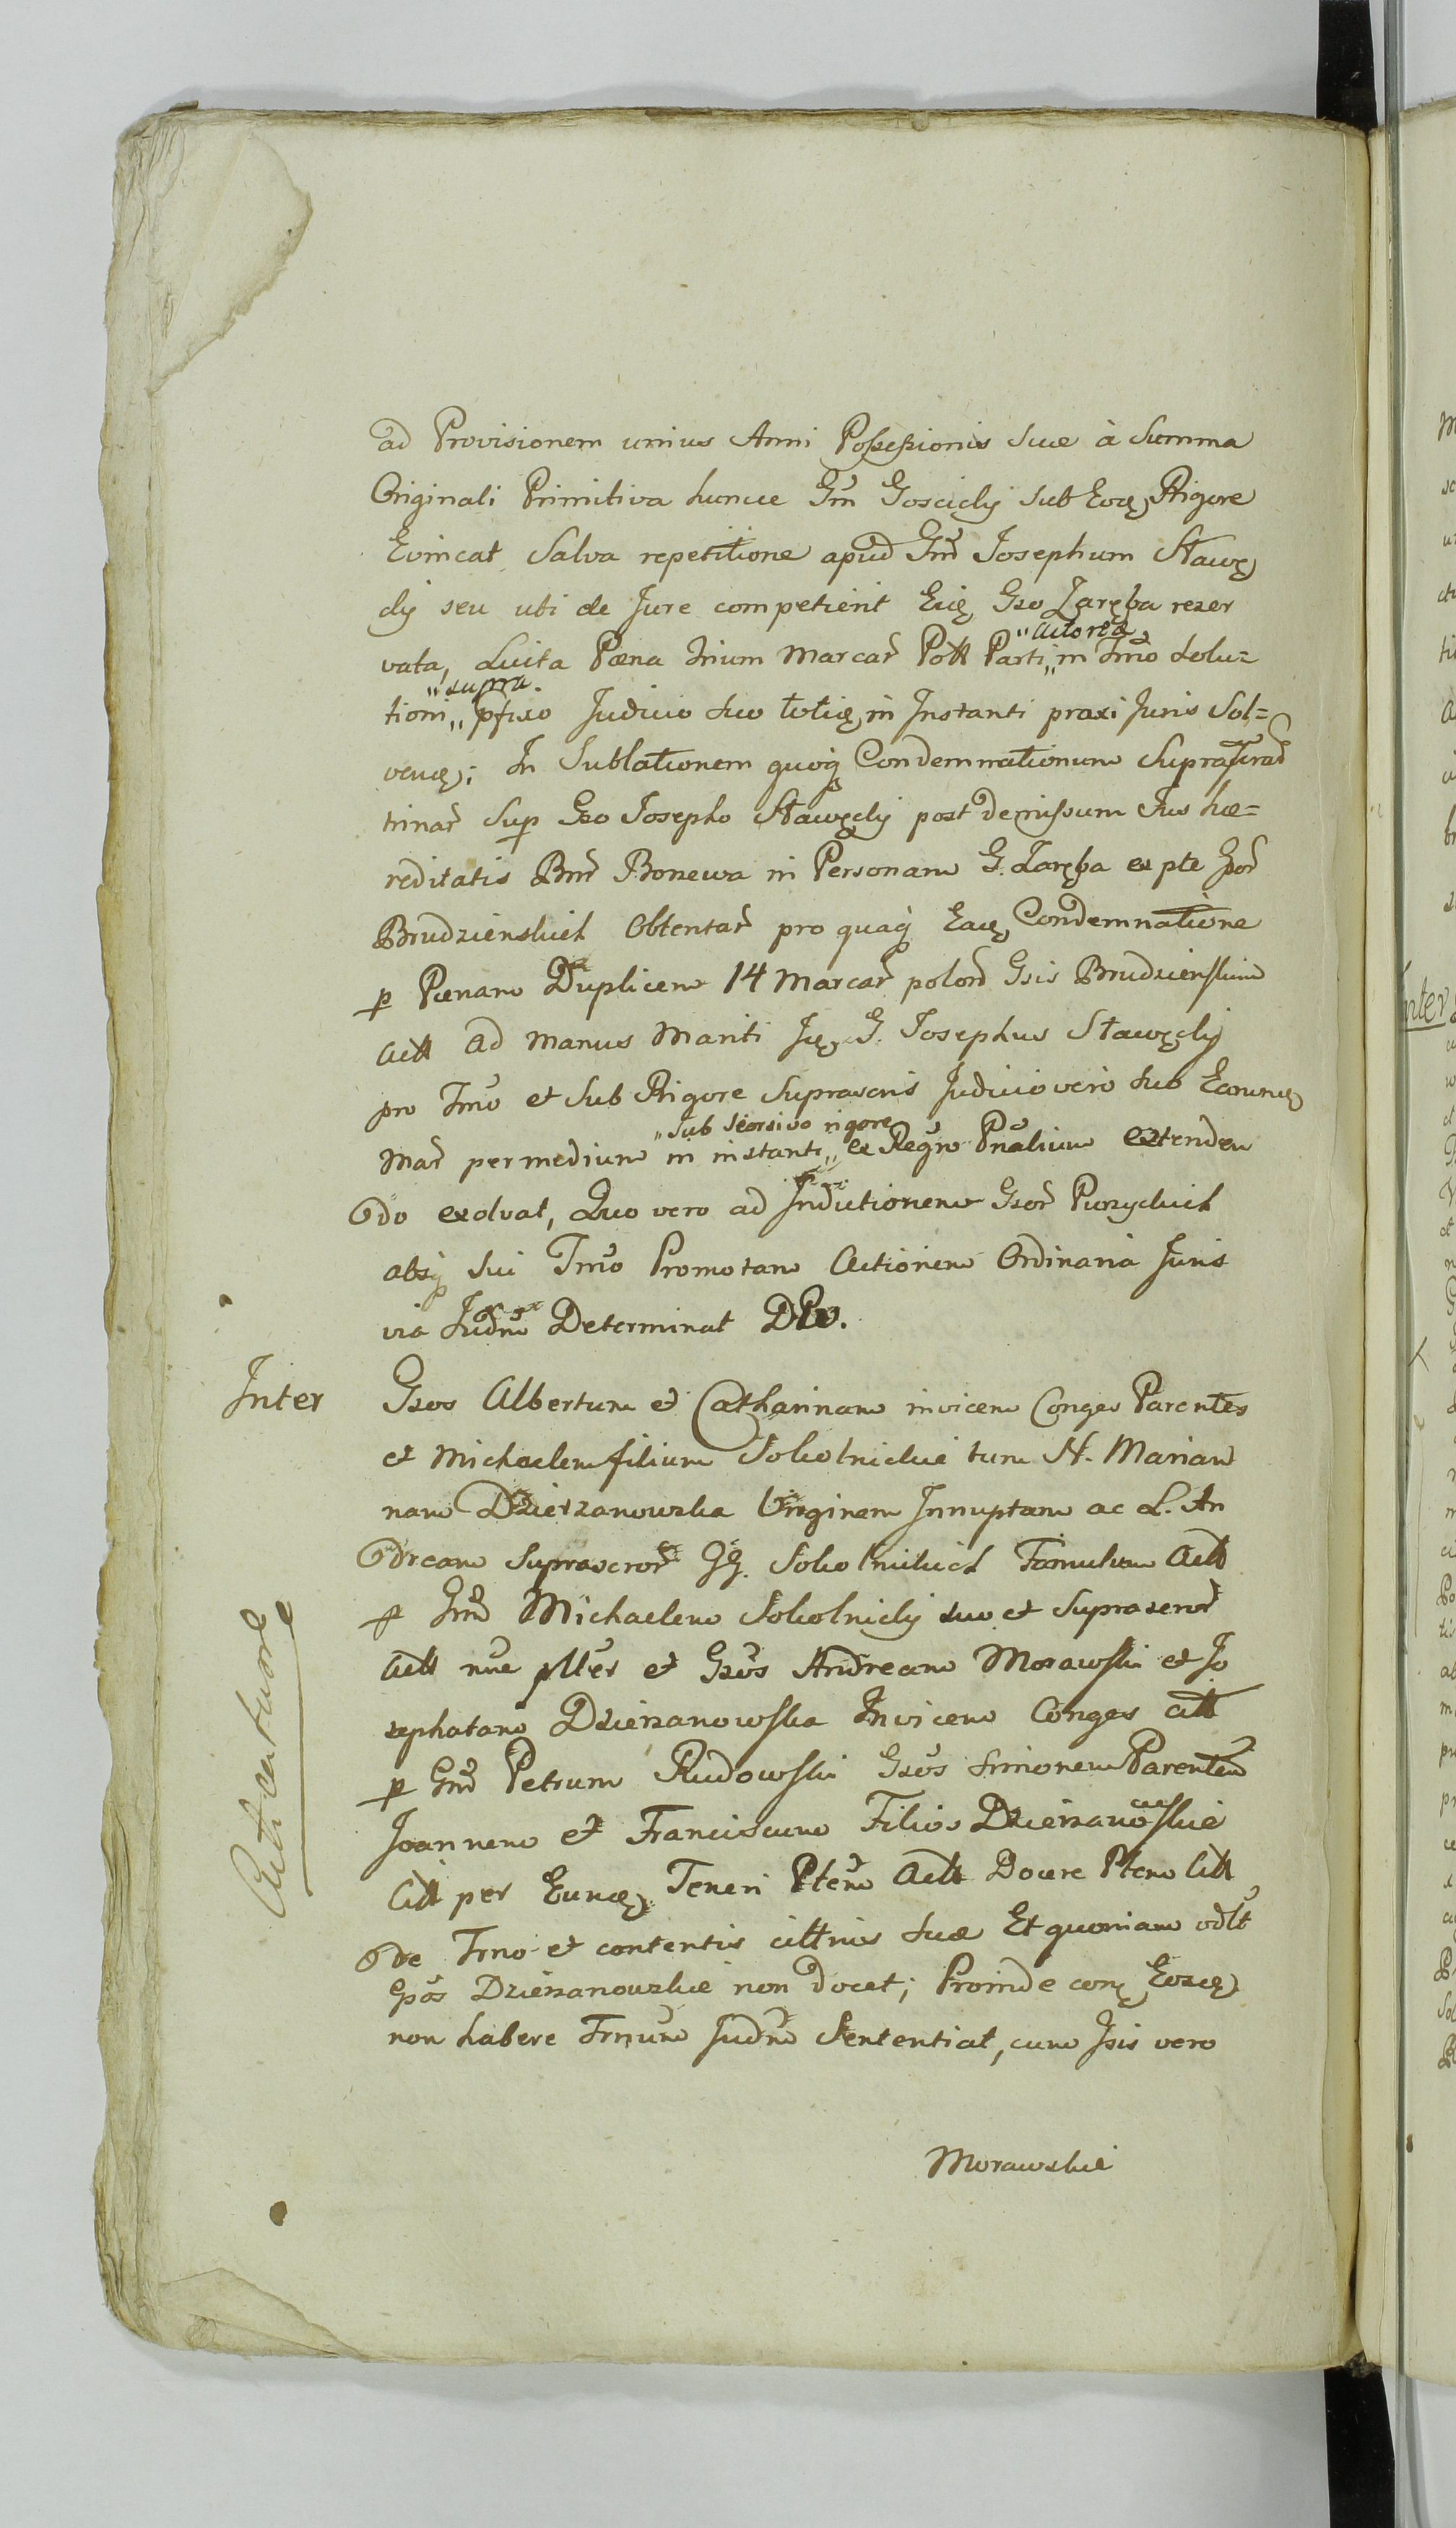 ad Provisionem unius Anni Possessionis suae à Summa
Originali Primitiva hunce Gm Goscicky sub Eoq Rigore
Evincat Salva repetitione apud Gm Josephum Stawę
cky seu ubi de Jure competierit Eiq Gso Zaręba reser
vata, Luita Pæna trium Marcar Poll Parti „ in Tmo Solu=
„ actorea
tioni „ pfixo Judicio suo toties in Instanti praxi Juris Sol=
„ supra.
venq; In Sublationem quoq Condemnationum Supra
trinar Sup Gso Josepho Stawęcky post demissum Jus hæ=
reditatis Bnr Bonewa in Personam G. Zaręba ex pte
Brudzienskich Obtentar pro quaq Eaq Condemnatione
p Pænam Duplicem 14 Marcar polon Gsis Brudzienskim
Actt ad Manus Mariti G. Josephus Stawęcky
pro Tmo et sub Rigore Suprascris Judicio vero sub
Mar per medium in instanti „ ex Regro Pnalium extenden
„ sub seorsivo rigore
do exolvat, Quo vero ad Inductionem Gsor Purzyckich
absq sui Tmo Promotam Actionem Ordinaria Juris
via Judm Determinat DPw.
Inter Gsos Albertum et Catharinam invicem Conges Parentes
et Michaelem filium Sokolnickie tum N. Marian
nam Dzierzanowska Virginem Innuptam ac L. An
dream Suprascror GG. Sokolnickich Famulum Actt
p Gm Michaelem Sokolnicky suo et Suprascror
Actt nne pller et Gsos Andream Morawski et Jo
sephatam Dzierzanowska Invicem Conges citt
p Gm Petrum Rudowski Gsos Simonem Parentem
Joannem et Franciscum Filios Dzierzanowskie
Citt per Eunq Teneri Ptem Actt Docere Ptem Citt
de Tmo et contentis cittnis suæ Et quoniam
Dzierzanowskie non docet; Proinde con Eosq
non habere Tmum Judm Sententiat, cum Jsis vero
Morawskie